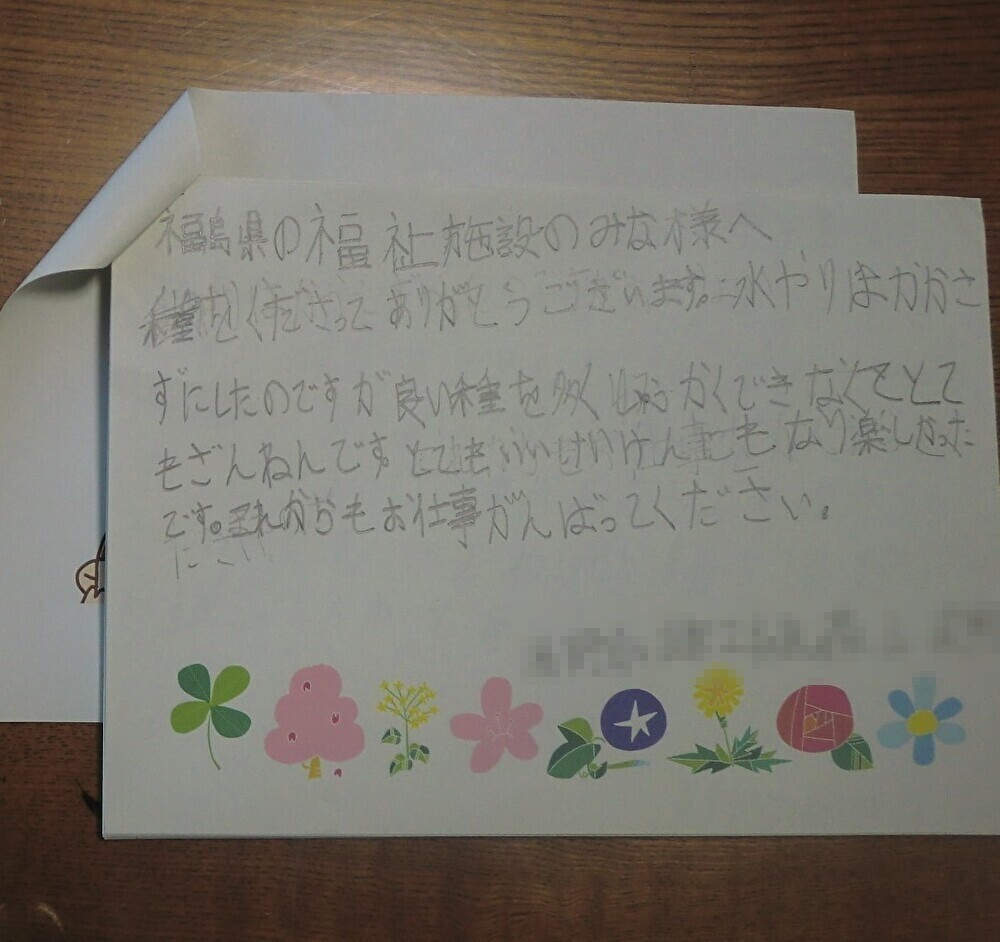 福島県の福祉施設のみな様へ
種をくださってありがとうございます。水やりはかかさ
ずにしたのですが良い種を多くしゅうかくできなくてとて
もざんねんです。とてもいいけいけん もなり楽しかった
です。これからもお仕事がんばってください。